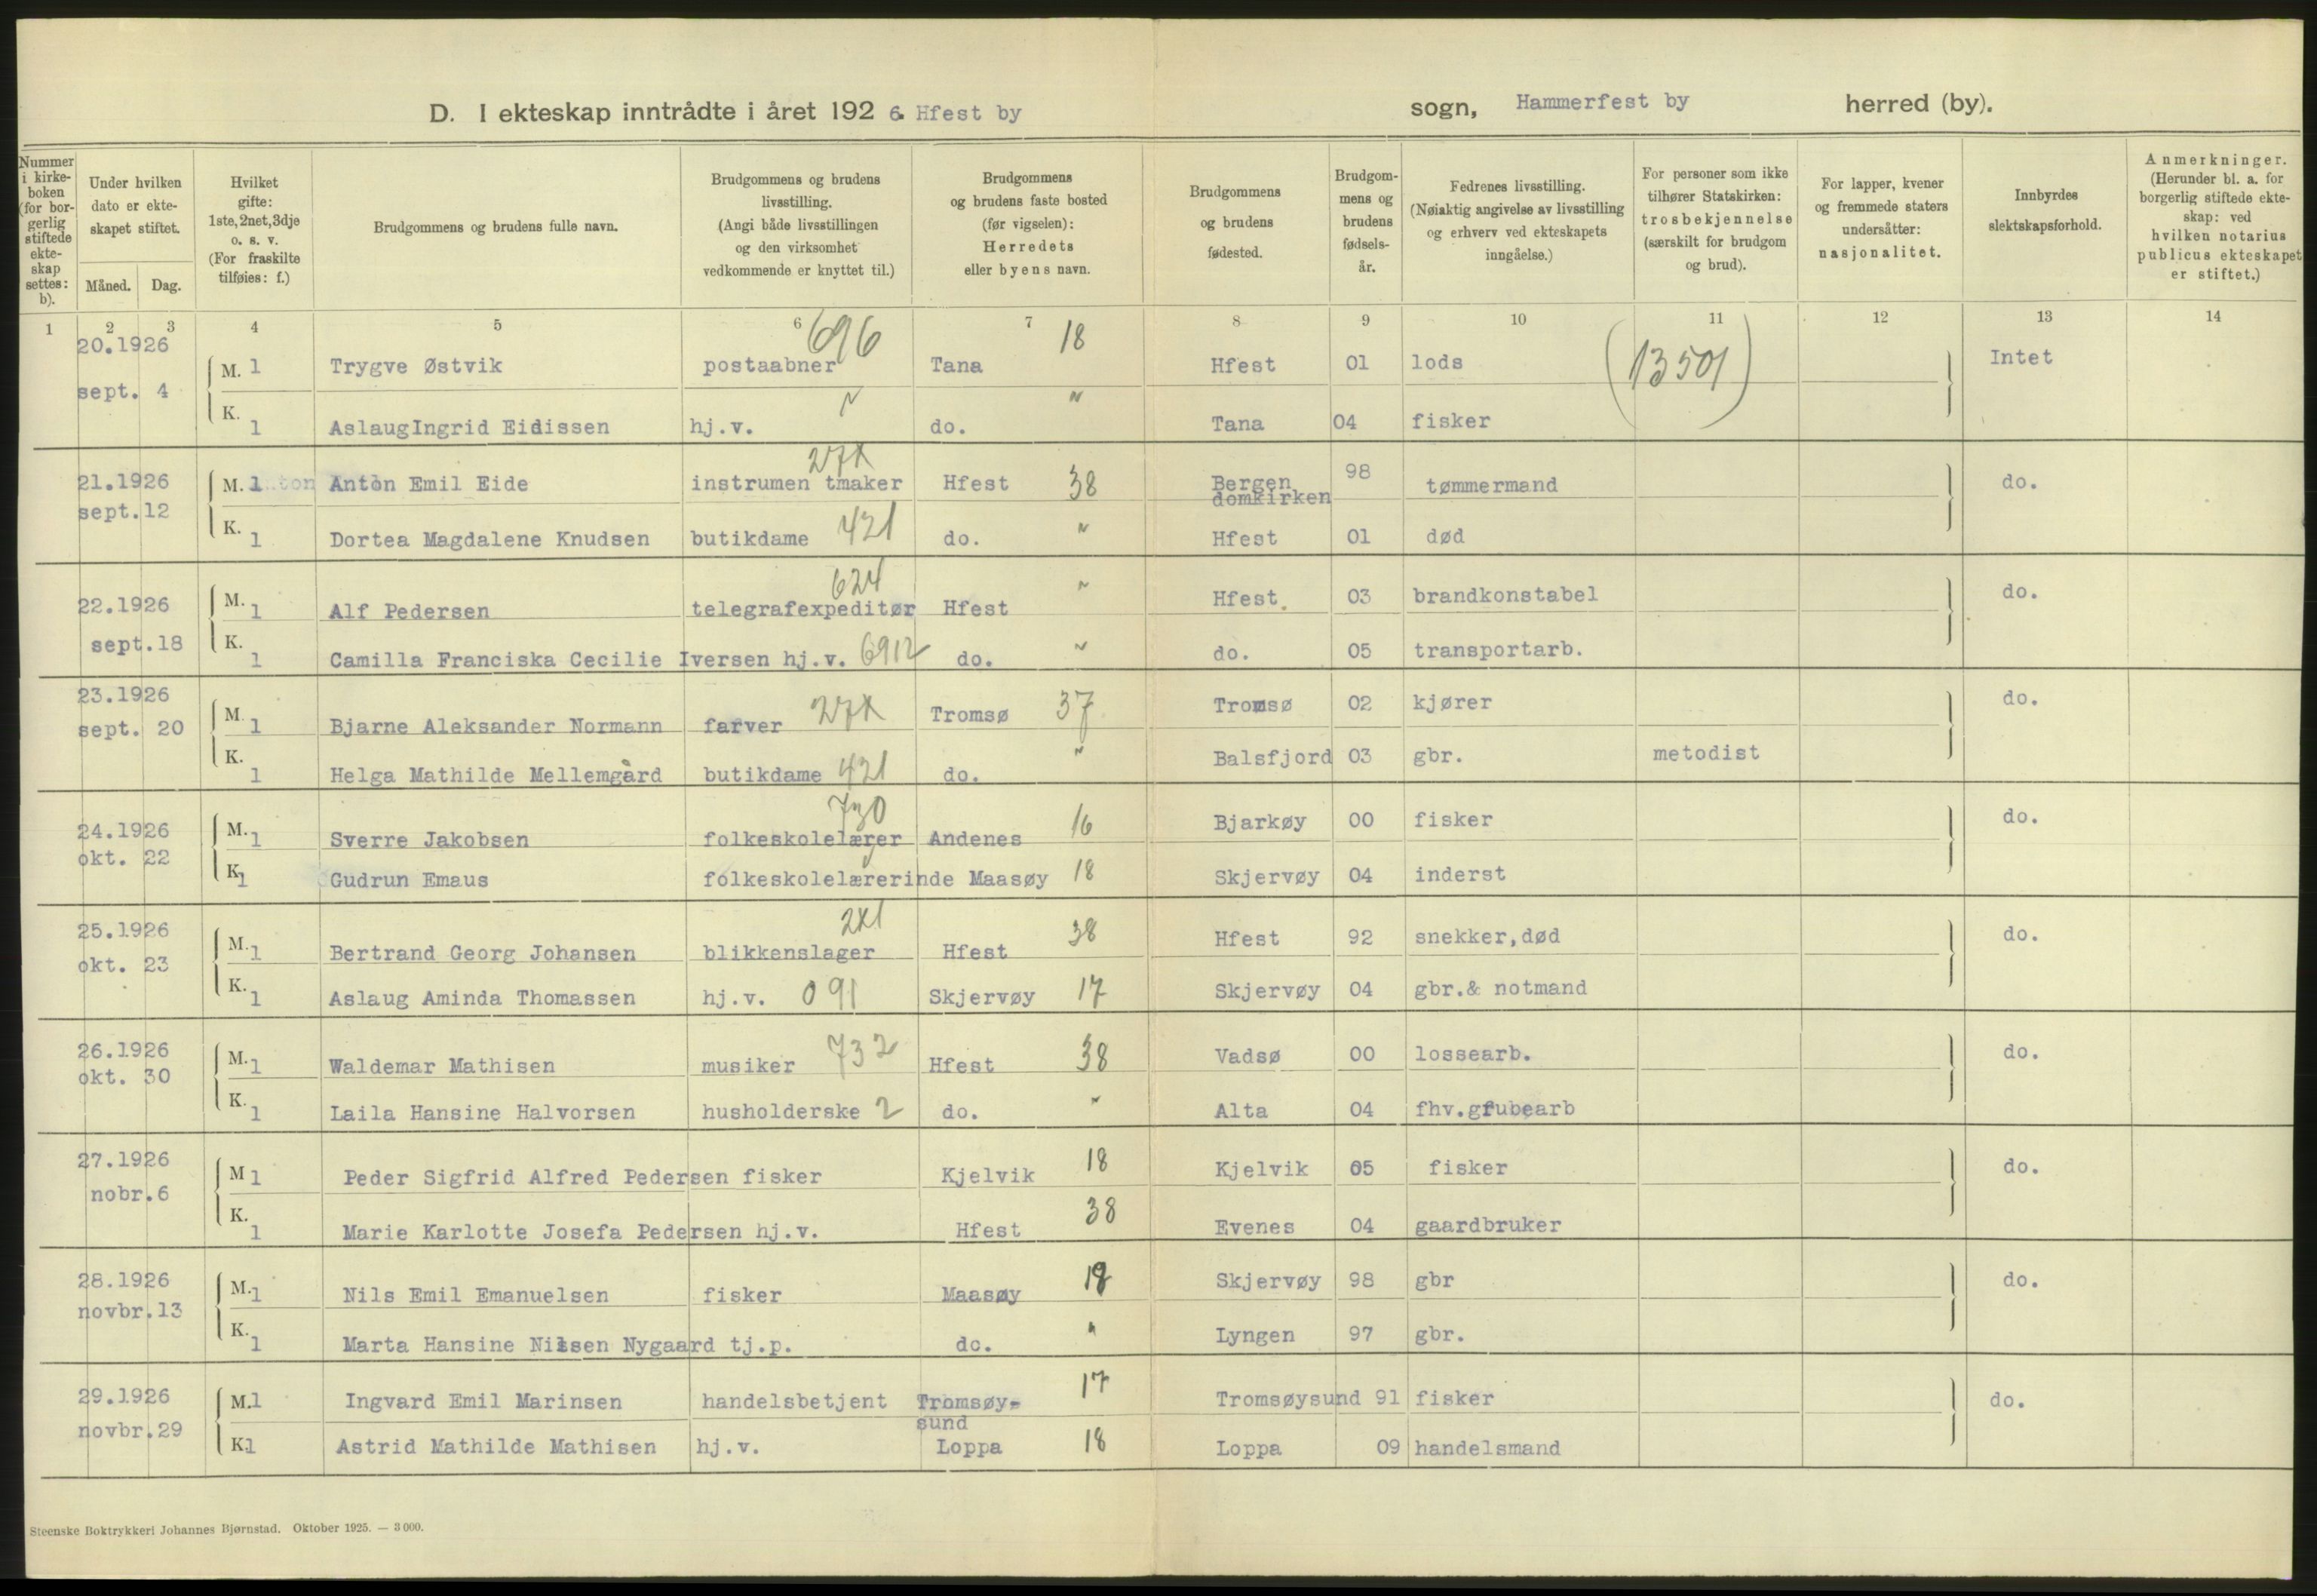 D. I ekteskap inntrådte i året 1926. Hfest by sogn, Hammerfest by herred (by).
Nummer i kirke-boken (for bor-gerlig stiftede ekte-skap settes: b).
Under hvilken dato er ekte-skapet stiftet.
Måned. Dag.
Hvilket gifte: 1ste, 2net, 3dje o. s. v. (For fraskilte tilføies: f.)
Brudgommens og brudens fulle navn.
Brudgommens og brudens livsstilling. (Angi både livsstillingen og den virksomhet vedkommende er knyttet til.)
Brudgommens og brudens faste bosted (før vigselen): Herredets eller byens navn.
Brudgommens og brudens fødested.
Brudgom-mens og brudens fødsels-år.
Fedrenes livsstilling. (Nøiaktig angivelse av livsstilling og erhverv ved ekteskapets inngåelse.)
For personer som ikke tilhører Statskirken: trosbekjennelse (særskilt for brudgom og brud).
For lapper, kvener og fremmede staters undersåtter: nasjonalitet.
Innbyrdes slektskapsforhold.
Anmerkninger. (Herunder bl. a. for borgerlig stiftede ekte-skap: ved hvilken notarius publicus ekteskapet er stiftet.)
1 2 3 4 5 6 7 8 9 10 11 12 13 14
20.1926 696 18
M. 1 Trygve Østvik postaabner Tana Hfest 01 lods (13501) Intet
sept. 4
K. 1 AslaugIngrid Eidissen hj.v. " do. " Tana 04 fisker
21.1926 M. 1 Anton Emil Eide instrumentmaker 27X Hfest 38 Bergen domkirken 98 tømmermand do.
sept.12 K. 1 Dortea Magdalene Knudsen butikdame 421 do. " Hfest 01 død
22.1926 M. 1 Alf Pedersen telegrafexpeditør 624 Hfest " Hfest. 03 brandkonstabel do.
sept.18 K. 1 Camilla Franciska Cecilie Iversen hj.v. 6912 do. " do. 05 transportarb.
23.1926 M. 1 Bjarne Aleksander Normann farver 27X Tromsø 37 Tromsø 02 kjører do.
sept. 20 K. 1 Helga Mathilde Mellemgård butikdame 421 do. " Balsfjord 03 gbr. metodist
24.1926 M. 1 Sverre Jakobsen folkeskolelærer 730 Andenes 16 Bjarkøy 00 fisker do.
okt. 22 K. 1 Gudrun Emaus folkeskolelærerinde " Maasøy 18 Skjervøy 04 inderst
25.1926 M. 1 Bertrand Georg Johansen blikkenslager 2X1 Hfest 38 Hfest 92 snekker,død do.
okt. 23 K. 1 Aslaug Aminda Thomassen hj.v. 091 Skjervøy 17 Skjervøy 04 gbr.& notmand
26.1926 M. 1 Waldemar Mathisen musiker 732 Hfest 38 Vadsø 00 lossearb. do.
okt. 30 K. 1 Laila Hansine Halvorsen husholderske 2 do. " Alta 04 fhv.grubearb
27.1926 M 1 Peder Sigfrid Alfred Pedersen fisker Kjelvik 18 Kjelvik 05 fisker do.
nobr.6 K. 1 Marie Karlotte Josefa Pedersen hj.v. Hfest 38 Evenes 04 gaardbruker
28.1926 M. 1 Nils Emil Emanuelsen fisker Maasøy 18 Skjervøy 98 gbr do.
novbr.13 K. 1 Marta Hansine Nilsen Nygaard tj.p. do. " Lyngen 97 gbr.
29.1926 M. 1 Ingvard Emil Marinsen handelsbetjent Tromsøy-sund 17 Tromsøysund 91 fisker do.
novbr.29 K. 1 Astrid Mathilde Mathisen hj.v. Loppa 18 Loppa 09 handelsmand
Steenske Boktrykkeri Johannes Bjørnstad. Oktober 1925. — 3 000.